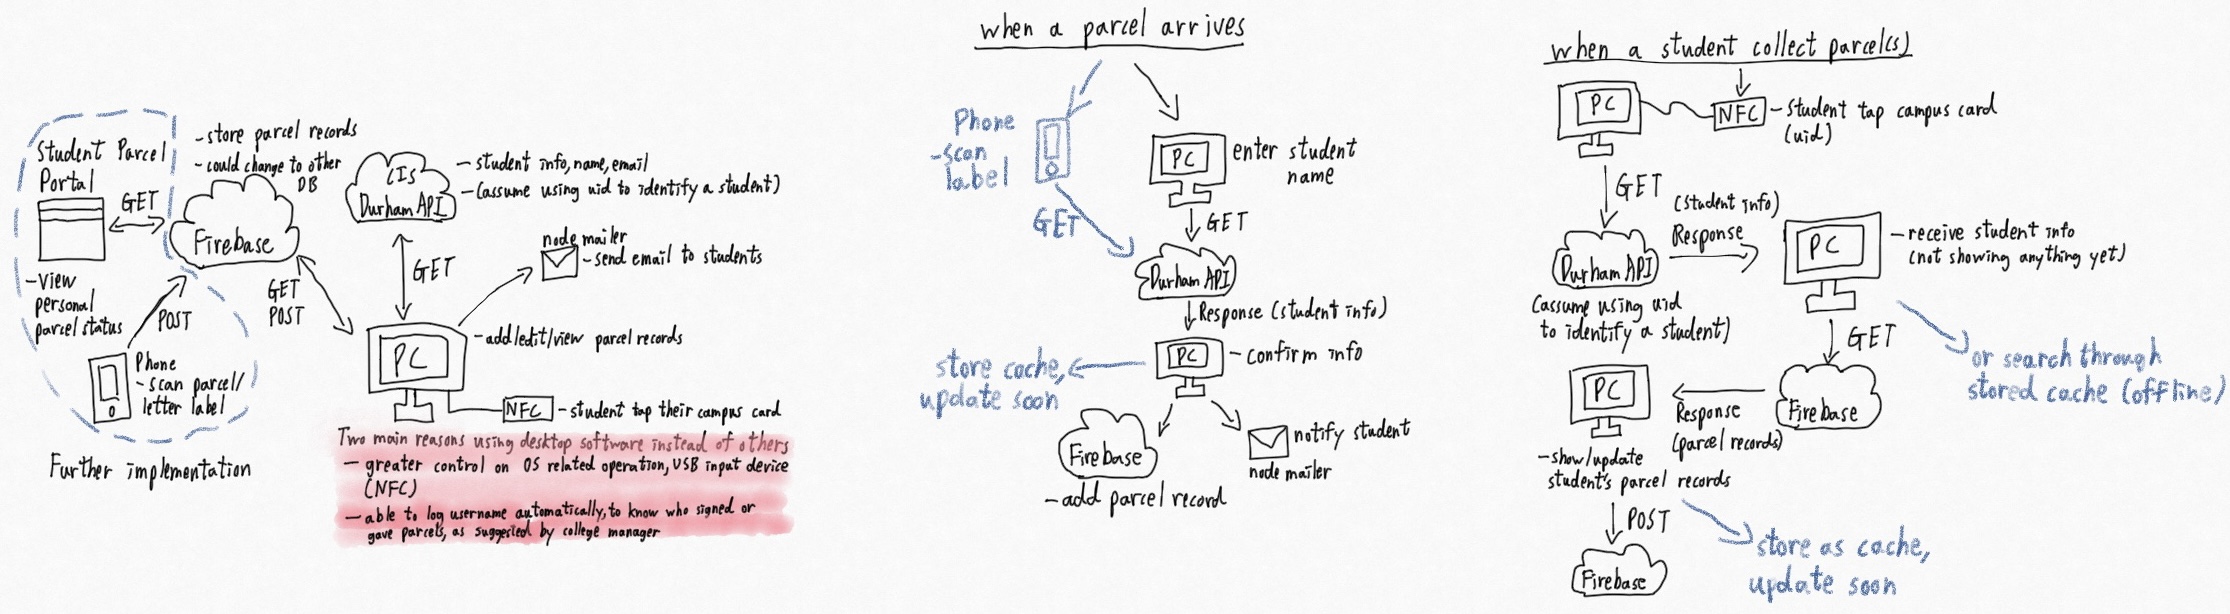 Student Parcel
Portal
GET
- View
personal
parcel status
POST
Phone
- scan parcel/
letter label
Further implementation
- store parcel records
- could change to other
DB
Firebase
GET
POST
CIS
Durham API
- student info, name, email
- (assume using uid to identify a student)
GET
node mailer
- send email to students
PC
- add/edit/view parcel records
NFC
- student tap their campus card
Two main reasons using desktop software instead of others
- greater control on OS related operation, USB input device
(NFC)
- able to log username automatically, to know who signed or
gave parcels, as suggested by college manager
when a parcel arrives
Phone
- scan
label
GET
PC
enter student
name
GET
Durham API
Response (student info)
PC
- confirm info
store cache,
update soon
Firebase
- add parcel record
notify student
node mailer
when a student collect parcel(s)
PC
NFC
- Student tap campus card
(uid)
GET
Durham API
(assume using uid
to identify a student)
(student info)
Response
PC
- receive student info
(not showing anything yet)
GET
or search through
stored cache (offline)
Firebase
Response
(parcel records)
PC
- show/update
student's parcel records
POST
Firebase
store as cache,
update soon